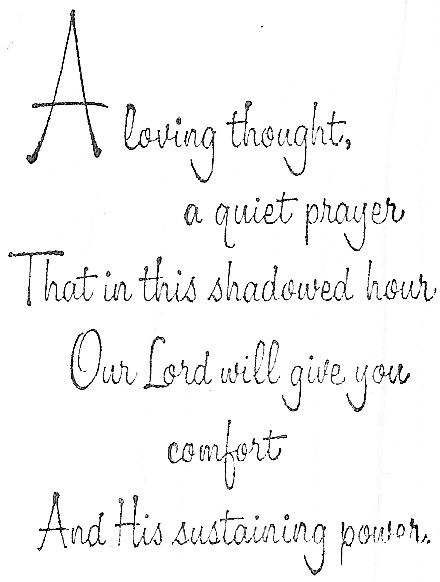 A loving thought,
a quiet prayer
That in this shadowed hour
Our Lord will give you
comfort
And His sustaining power.